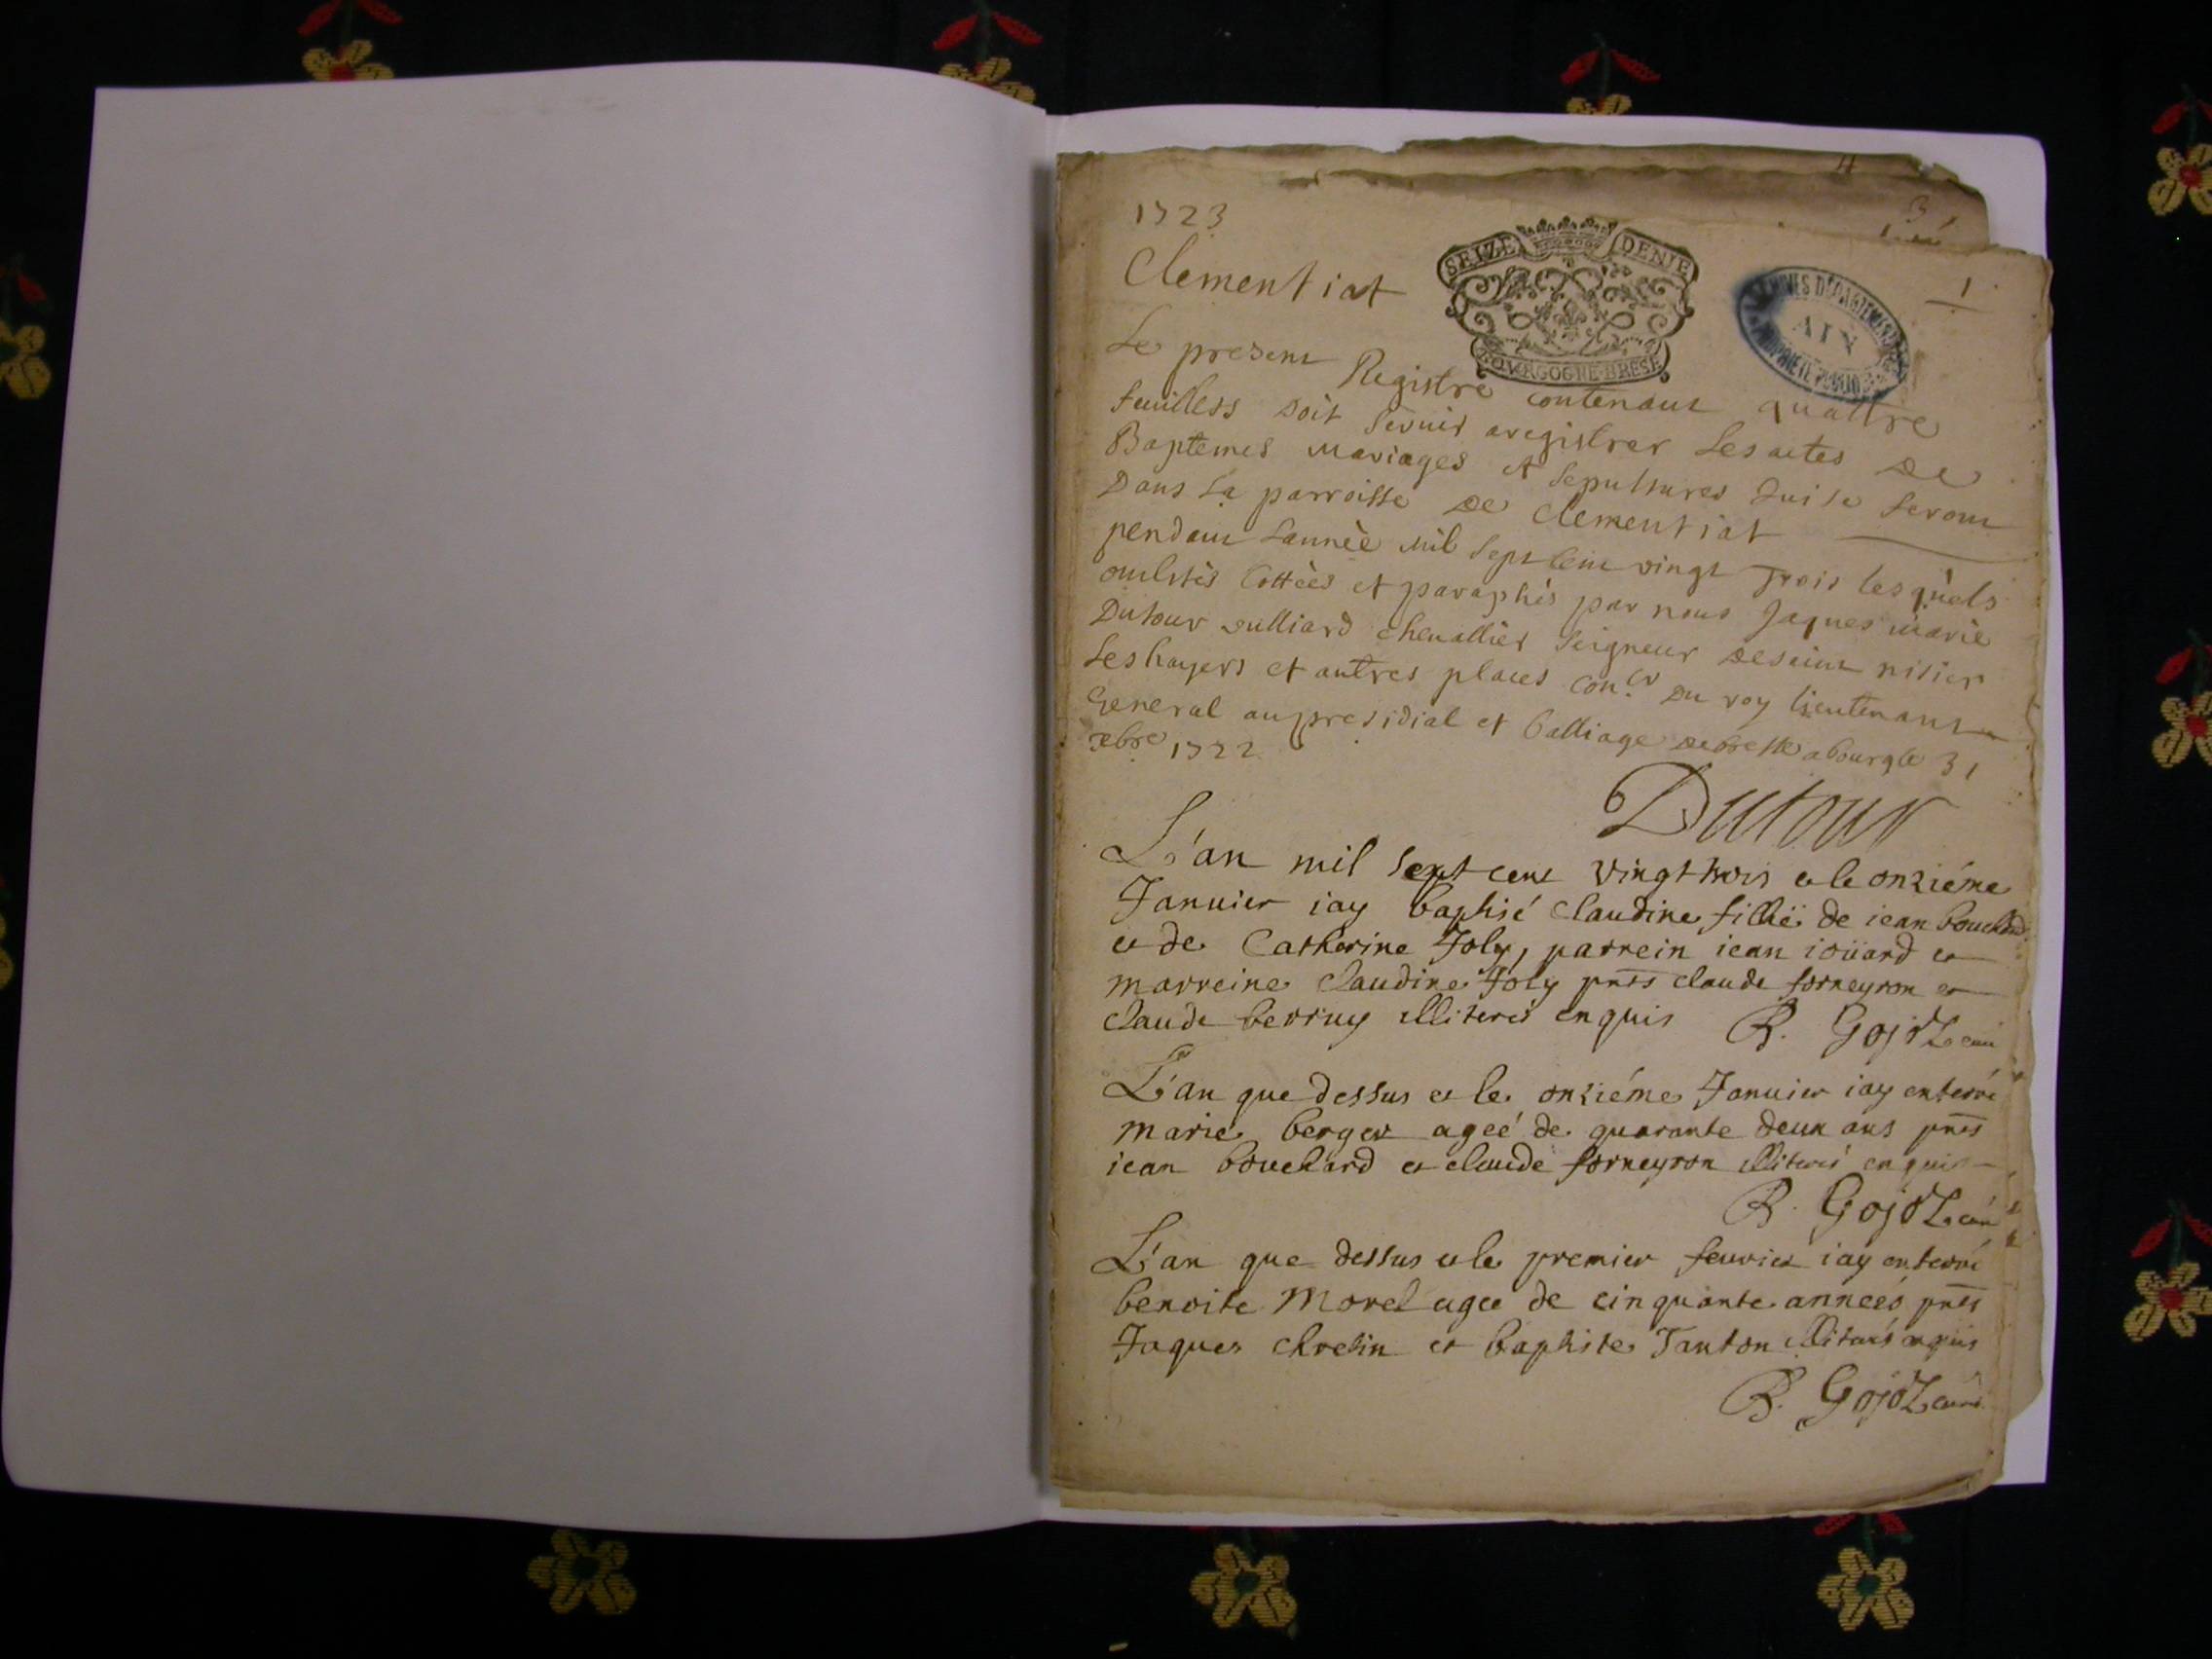 4
3
1723
SEIZE DENIE
1
Clementiat
ARCHIVES DÉPARTEMENTALES
AIN
PROPRIÉTÉ PUBLIQUE
BOURGOGNE·BRESE
Le present Registre contenant quattre
feuillets doit servir a registrer Les actes de
Baptemes mariages et sepultures qui se feront
Dans La parroisse de Clementiat
pendant Lannée mil sept cent vingt trois lesquels
cottées et paraphés par nous Jaques marie
Dutour vulliard chevallier Seigneur de saint nisier
Les hayers et autres places con.er du roy lieutenant
General au presidial etballiage de bresse a bourg le 31
xbre 1722
Dutour
L'an mil sept cent vingt trois et le onziéme
Januier iay baptisé Claudine fille de iean bouchard
et de Catherine Joly, parrein iean ioüard et
marreine Claudine Joly pnts claude forneyron et
claude berruy illiterés enquis B. Gojoz curé
L'an que dessus et le onziéme Januier iay enterré
marie berger ageé de quarante deux ans pnts
iean bouchard et claude forneyron illiterés enquis
B. Gojoz curé
L'an que dessus et le premier feurier iay enterré
benoite Morel agée de cinquante années pnts
Jaques chretin et baptiste Tanton illiterés enquis
B. Gojoz curé